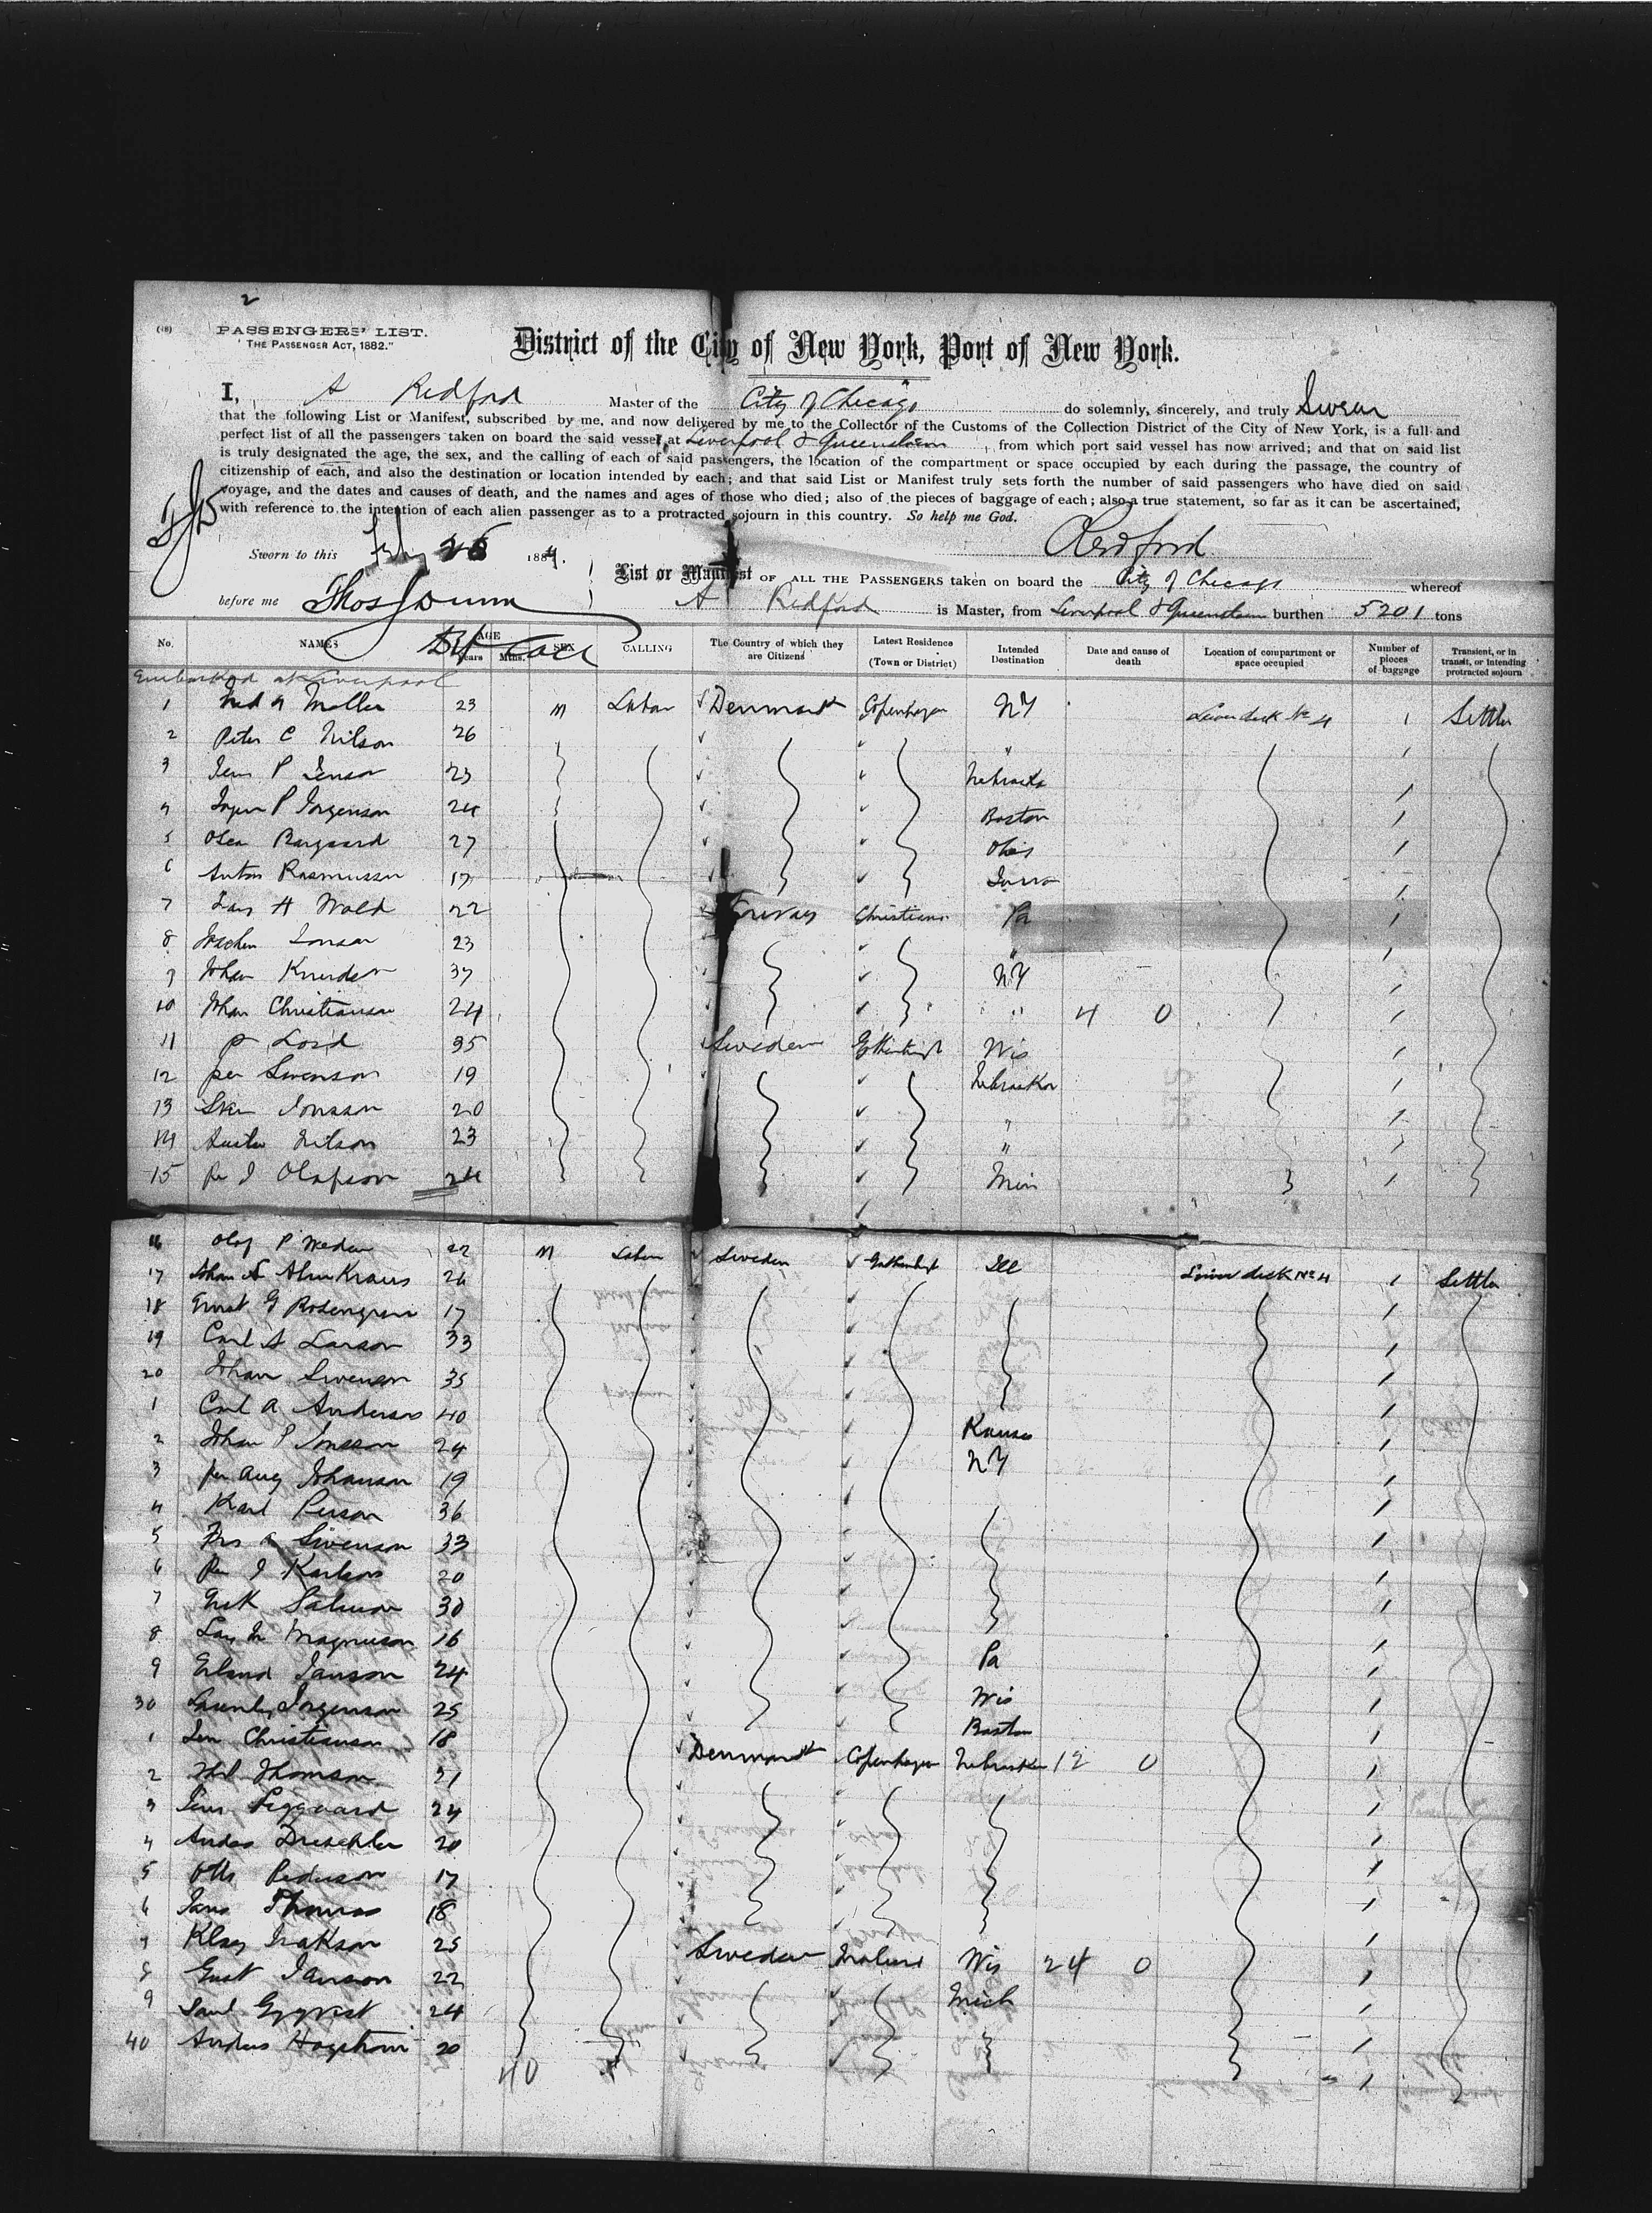 2
(18)
PASSENGERS' LIST.
"THE PASSENGER ACT, 1882."
District of the City of New York, Port of New York.
I, A Redford Master of the City of Chicago do solemnly, sincerely, and truly Swear
that the following List or Manifest, subscribed by me, and now delivered by me to the Collector of the Customs of the Collection District of the City of New York, is a full and
perfect list of all the passengers taken on board the said vessel at Liverpool & Queenstown, from which port said vessel has now arrived; and that on said list
is truly designated the age, the sex, and the calling of each of said passengers, the location of the compartment or space occupied by each during the passage, the country of
citizenship of each, and also the destination or location intended by each; and that said List or Manifest truly sets forth the number of said passengers who have died on said
voyage, and the dates and causes of death, and the names and ages of those who died; also of the pieces of baggage of each; also a true statement, so far as it can be ascertained,
with reference to the intention of each alien passenger as to a protracted sojourn in this country. So help me God.
Redford
Sworn to this Feby 188
List or Manifest OF ALL THE PASSENGERS taken on board the City of Chicago whereof
before me Thos Dunn A Redford is Master, from Liverpool & Queenstown burthen 5201 tons
No. NAMES AGE Years Mths. SEX CALLING The Country of which they are Citizens Latest Residence (Town or District) Intended Destination Date and cause of death Location of compartment or space occupied Number of pieces of baggage Transient, or in transit, or intending protracted sojourn
Embarked at Liverpool
1 Moller 23 M Labor Denmark Copenhagen NY Lower deck No 4 1 Settler
2 Peter C Nilson 26 " 1
3 Jens P Jenson 23 Nebraska 1
4 P Jorgenson 24 Boston 1
5 27 Ohio 1
6 Anton Rasmussen 17 Iowa 1
7 Lars H Wold 22 Norway Christiania Pa 1
8 Jonson 23 " 1
9 Johan Knudson 37 NY 1
10 Johan Christianson 24 " 4 0 1
11 P Lord 35 Sweden Gothenburg Wis 1
12 Per Swenson 19 Nebraska 1
13 Jonsson 20 " 1
14 Nilson 23 " 1
15 Per J Olafson 24 Min 1
16 Olof P 22 M Labor Sweden Gothenburg Ill Lower deck No 4 1 Settler
17 Johan A 26 1
18 Ernst G Rosengren 17 1
19 Carl A Larson 33 1
20 Johan Swenson 35 1
1 Carl A Anderson 40 Kansas 1
2 Johan P Jonsson 24 NY 1
3 Per Aug Johanson 19 1
4 Karl Person 36 1
5 Swenson 33 1
6 Per J Karlson 20 1
7 30 1
8 Lars M Magnuson 16 Pa 1
9 Erland Janson 24 Wis 1
30 Jorgenson 25 Boston 1
1 Jen Christianson 18 Denmark Copenhagen Nebraska 12 0 1
2 Thomson 21 1
3 Jens 24 1
4 Anders Dreschler 20 1
5 Otto Pederson 17 1
6 Jans Thomas 18 1
7 Isakson 25 Sweden Wis 24 0 1
8 Gust Janson 22 Mich 1
9 24 1
40 Anders Hogstrom 20 1
40